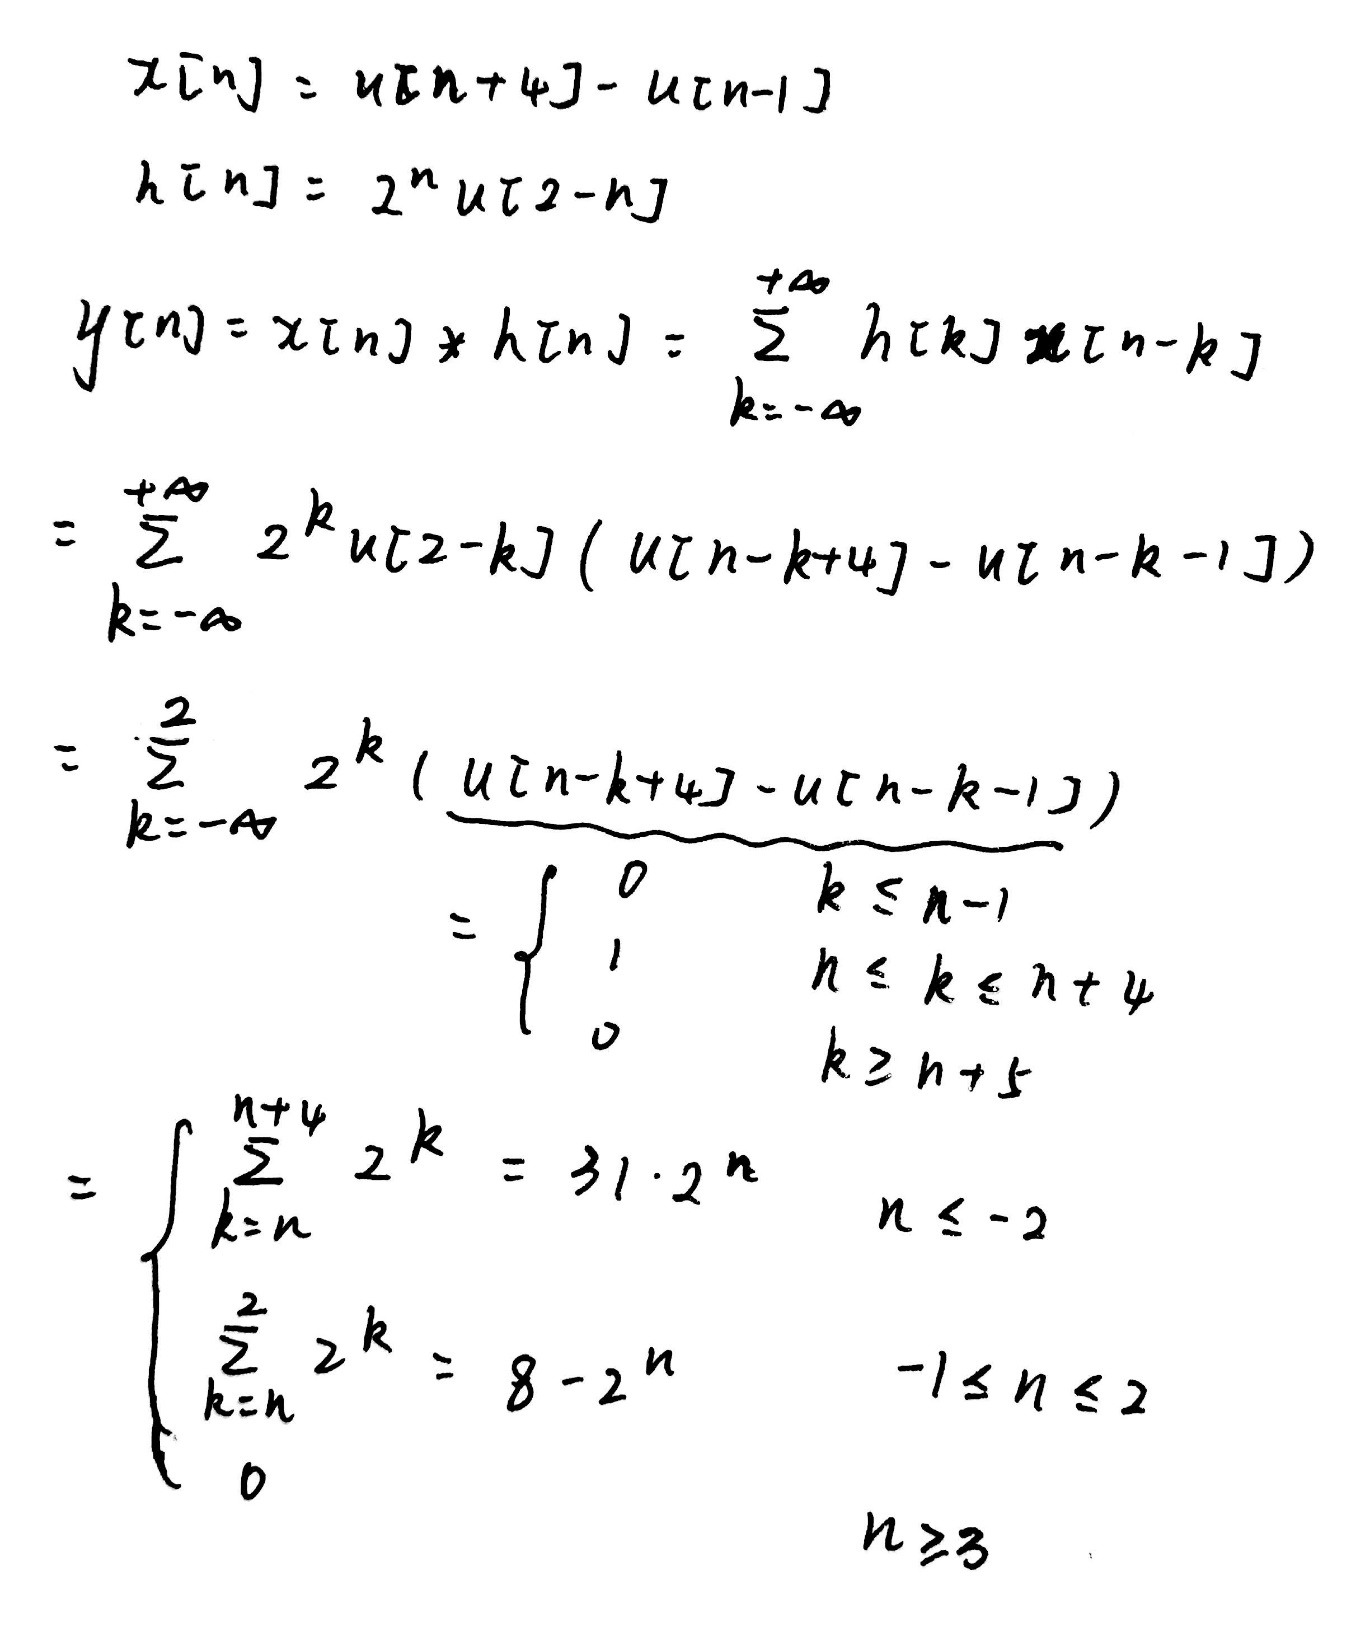 x[n] = u[n+4] - u[n-1]
h[n] = 2^n u[2-n]
y[n] = x[n] * h[n] = \sum_{k=-∞}^{+∞} h[k] x[n-k]
= \sum_{k=-∞}^{+∞} 2^k u[2-k] ( u[n-k+4] - u[n-k-1] )
= \sum_{k=-∞}^{2} 2^k ( u[n-k+4] - u[n-k-1] )
= { 0 k ≤ n-1
1 n ≤ k ≤ n+4
0 k ≥ n+5
= { \sum_{k=n}^{n+4} 2^k = 31·2^n n ≤ -2
\sum_{k=n}^{2} 2^k = 8-2^n -1 ≤ n ≤ 2
0 n ≥ 3